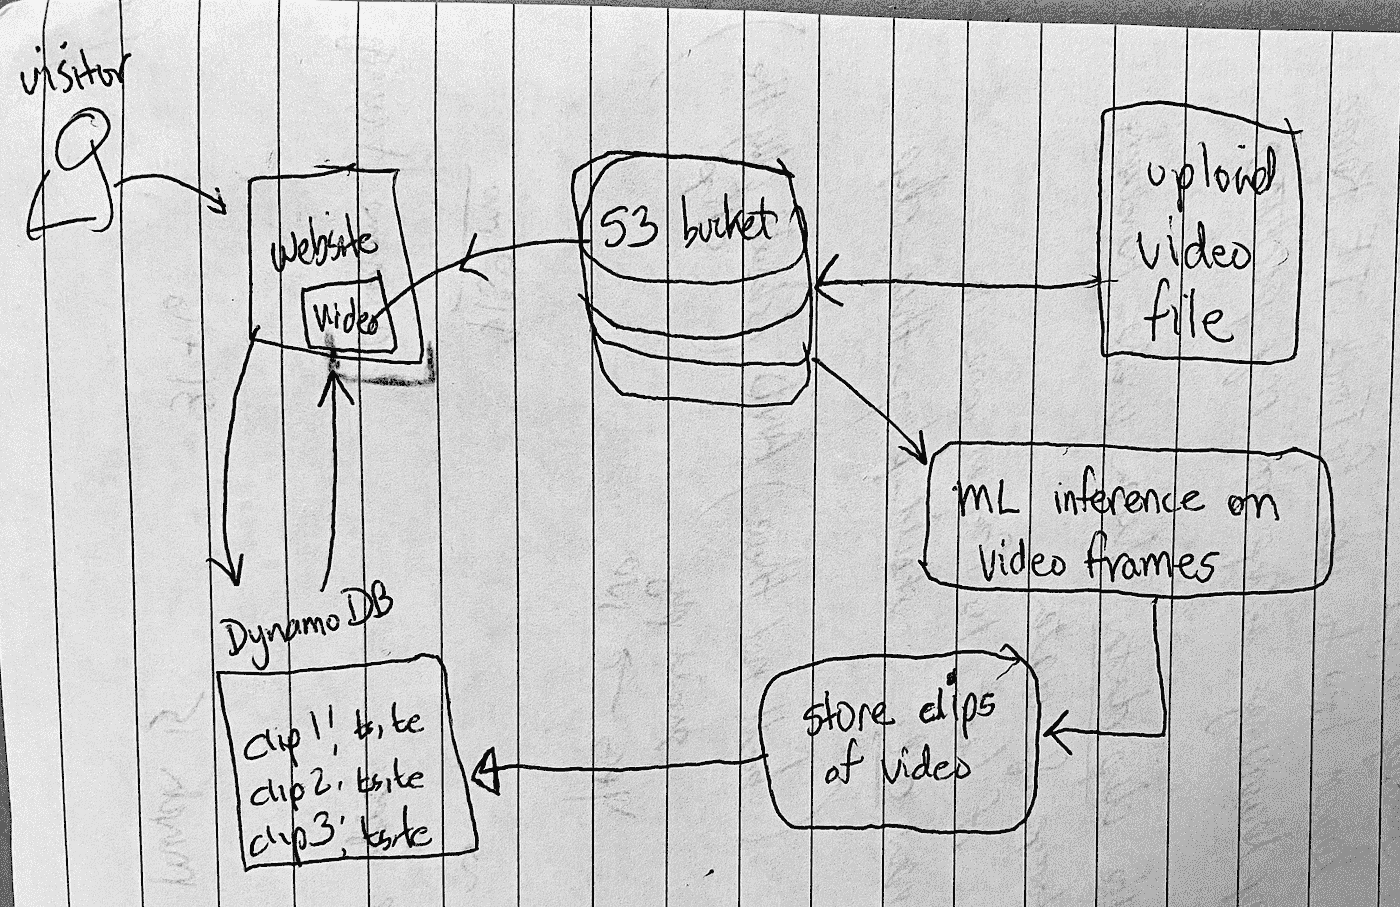 visitor
website
video
S3 bucket
upload
video
file
ML inference on
video frames
store clips
of video
DynamoDB
clip1: ts, te
clip2: ts, te
clip3: ts, te